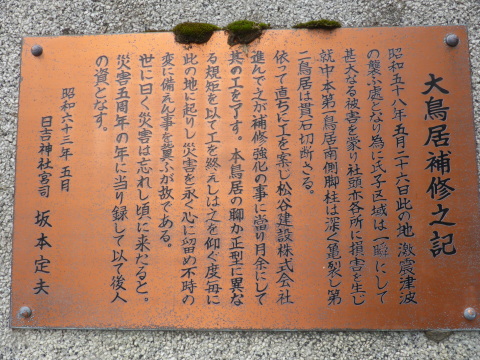 大鳥居補修之記
昭和五十八年五月二十六日此の地激震津波
の襲ふ處となり為に氏子区域は一瞬にして
甚大なる被害を蒙り社頭亦各所に損害を生じ
就中本第一鳥居南側脚柱は深く亀裂し第
二鳥居は貫石切断さる。
依つて直ちに工を案じ松谷建設株式会社
進んで之が補修強化の事に當り月余にして
其の工を了す。本鳥居の聊か正型に異な
る規矩を以て工を終えしは之を仰ぐ度毎に
此の地に起りし災害を永く心に留め不時の
変に備えん事を冀ふが故である。
世に曰く災害は忘れし頃に来たると。
災害五周年の年に当り録して以て後人
の資となす。
昭和六十三年五月
日吉神社宮司 坂本定夫